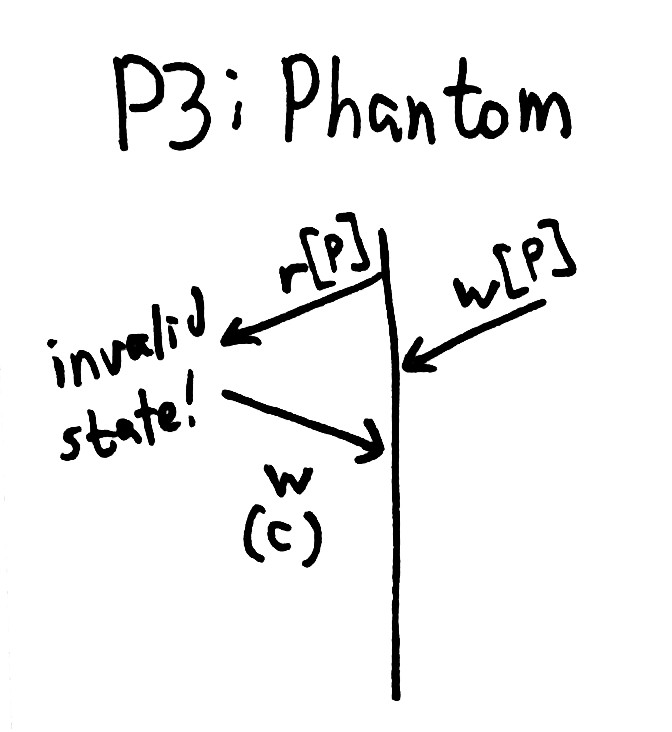 P3: Phantom
r[P]
w[P]
invalid
state!
w
(c)